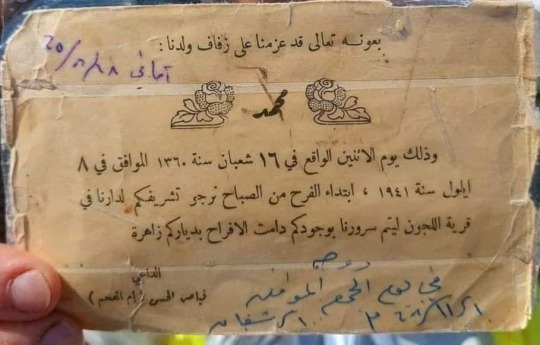 بعونه تعالى قد عزمنا على زفاف ولدنا :
محمد
وذلك يوم الاثنين الواقع في ١٦ شعبان سنة ١٣٦٠ الموافق في ٨
ايلول سنة ١٩٤١ ، ابتداء الفرح من الصباح نرجو تشريفكم لدارنا في
قرية اللجون ليتم سرورنا بوجودكم دامت الافراح بدياركم زاهرة
الداعي
( ام الفحم )
في يوم الجمعة الموافق